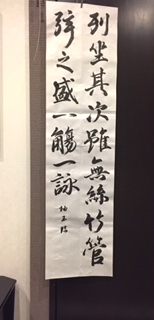 列坐其次雖無絲竹管
弦之盛一觴一詠